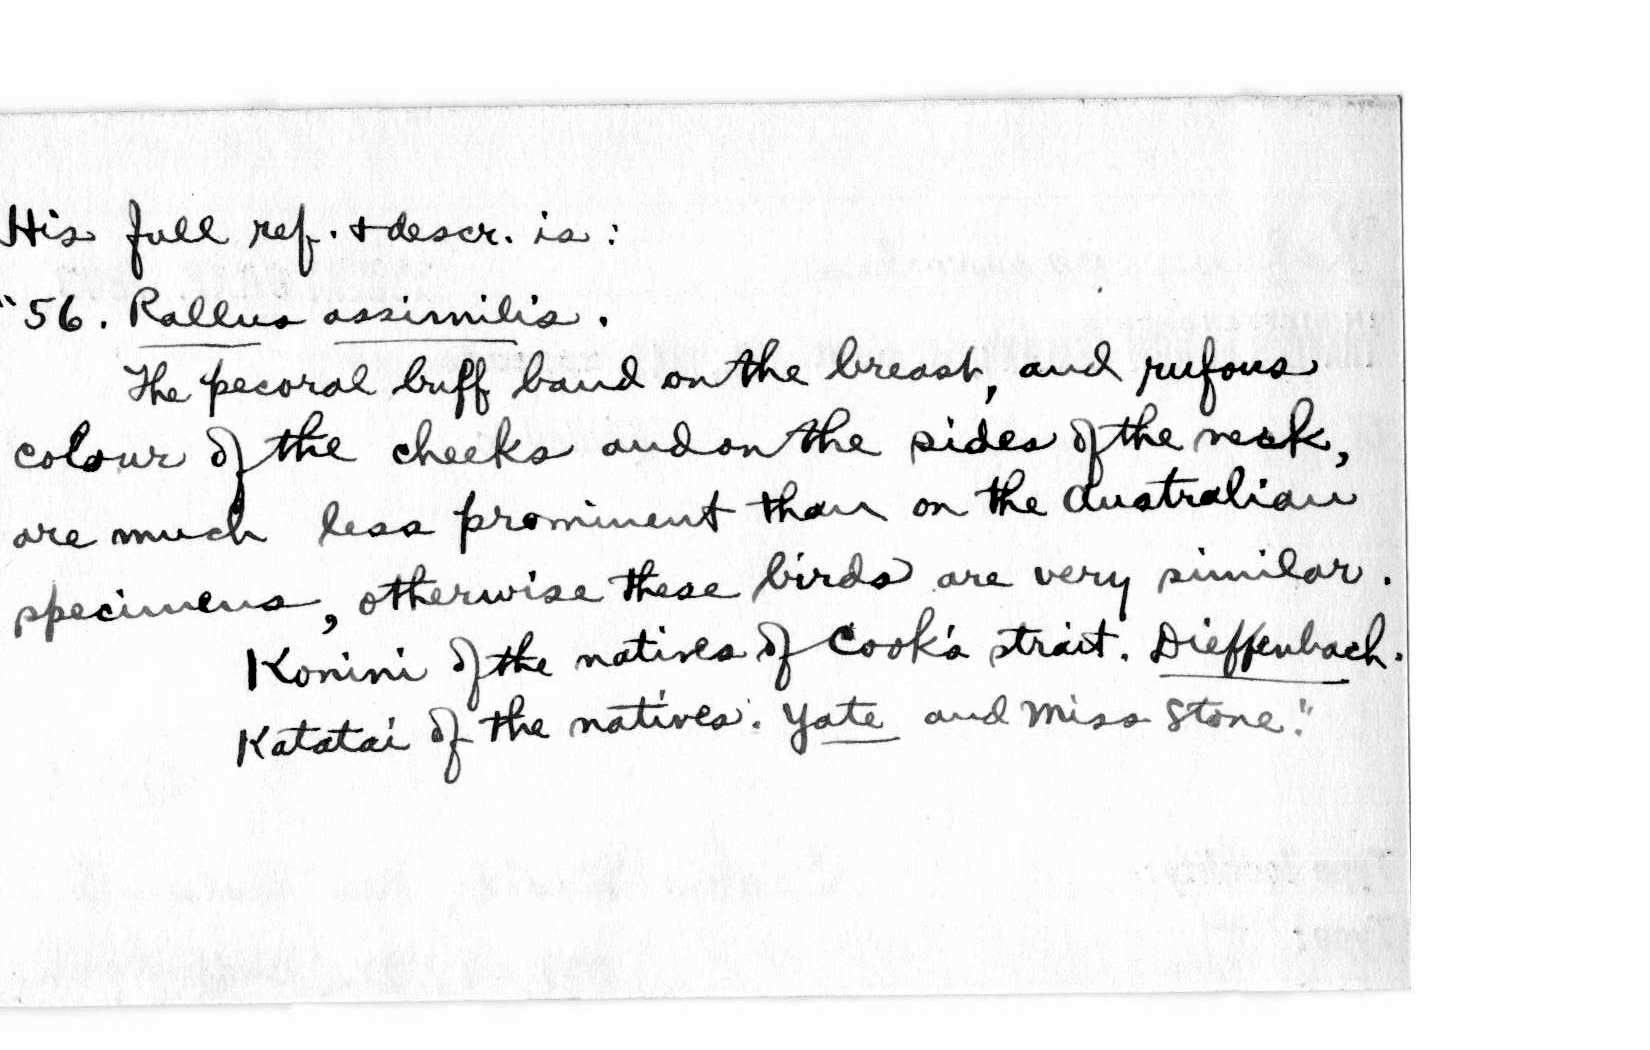 His full ref. + descr. is:
"56. Rallus assimilis.
The pecoral buff band on the breast, and rufous
colour of the cheeks and on the sides of the neck,
are much less prominent than on the Australian
specimens, otherwise these birds are very similar.
Konini of the natives of Cook's strait. Dieffenbach.
Katatai of the natives. Yate and Miss Stone."